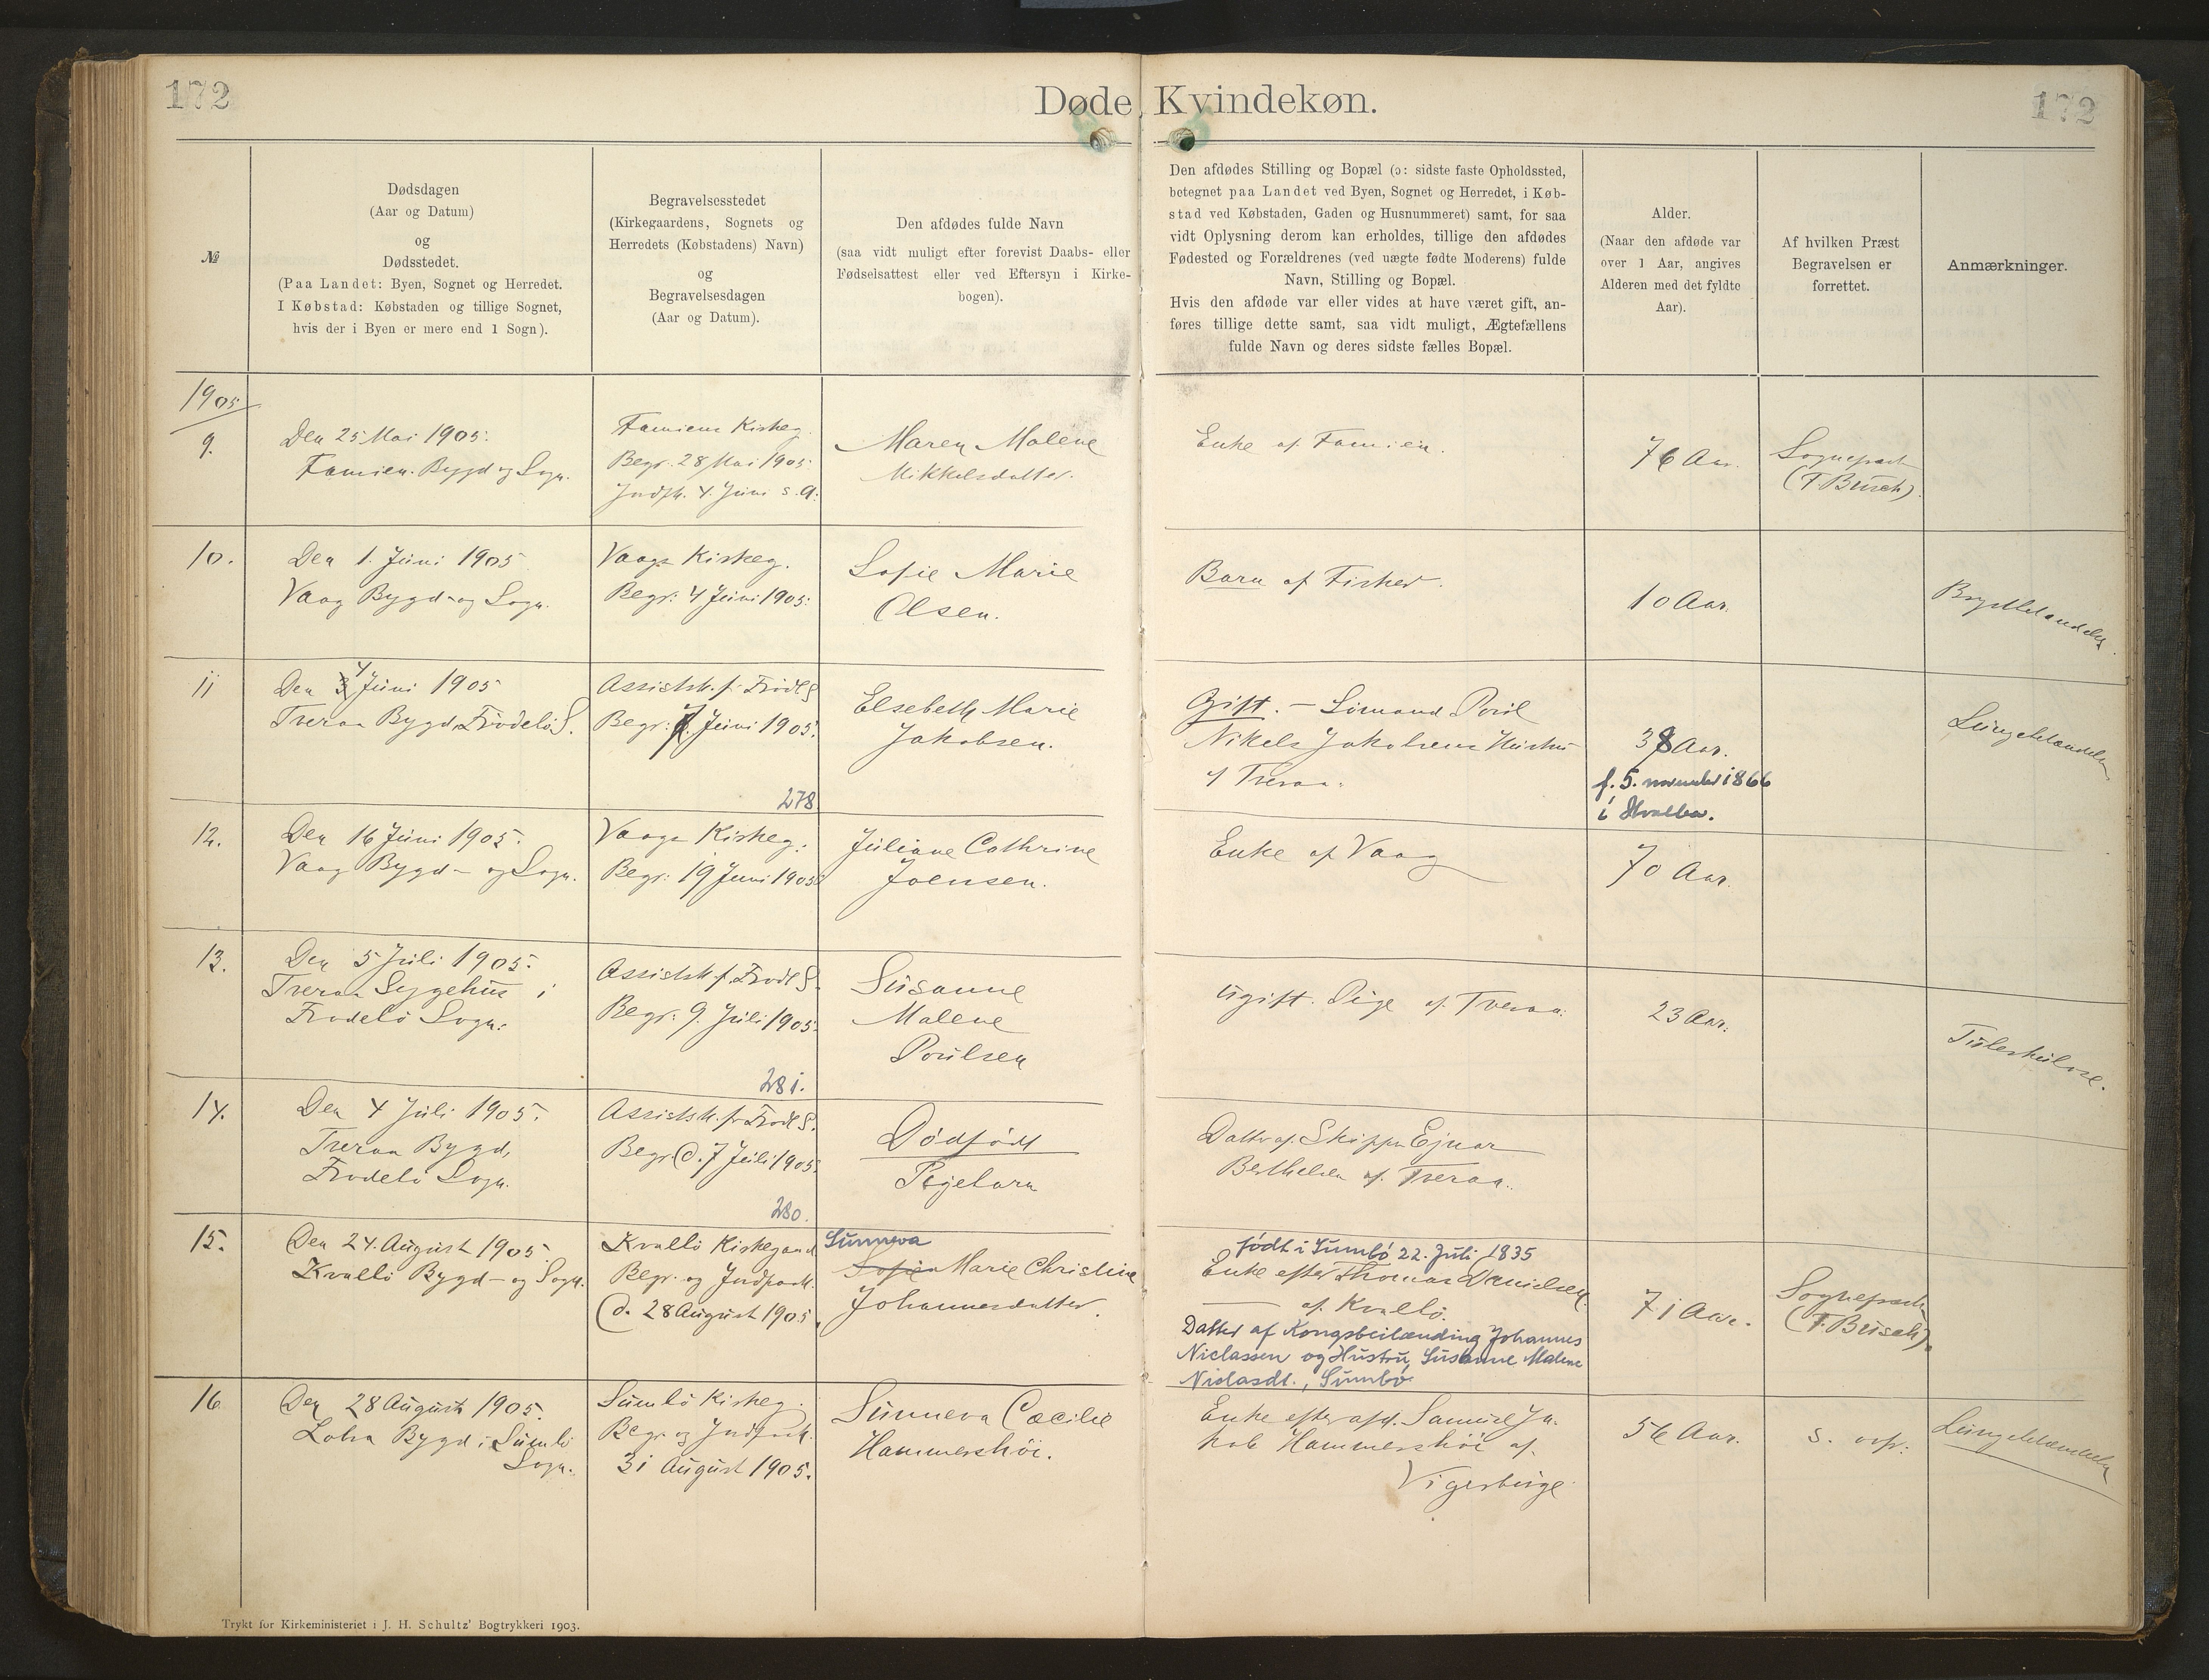 172
Døde Kvindekøn.
172
№
Dødsdagen
(Aar og Datum)
og
Dødsstedet.
(Paa Landet: Byen, Sognet og Herredet.
I Købstad: Købstaden og tillige Sognet,
hvis der i Byen er mere end 1 Sogn).
Begravelsesstedet
(Kirkegaardens, Sognets og
Herredets (Købstadens) Navn)
og
Begravelsesdagen
(Aar og Datum).
Den afdødes fulde Navn
(saa vidt muligt efter forevist Daabs- eller
Fødselsattest eller ved Eftersyn i Kirke-
bogen).
Den afdødes Stilling og Bopæl (ɔ: sidste faste Opholdssted,
betegnet paa Landet ved Byen, Sognet og Herredet, i Køb-
stad ved Købstaden, Gaden og Husnummeret) samt, for saa
vidt Oplysning derom kan erholdes, tillige den afdødes
Fødested og Forældrenes (ved uægte fødte Moderens) fulde
Navn, Stilling og Bopæl.
Hvis den afdøde var eller vides at have været gift, an-
føres tillige dette samt, saa vidt muligt, Ægtefællens
fulde Navn og deres sidste fælles Bopæl.
Alder.
(Naar den afdøde var
over 1 Aar, angives
Alderen med det fyldte
Aar).
Af hvilken Præst
Begravelsen er
forrettet.
Anmærkninger.
1905
9.
Den 25 Mai 1905.
Famien. Bygd og Sogn.
Famiens Kirkeg.
Begr. 28 Mai 1905.
Jndfk. 4. Juni s. A.
Maren Malene
Mikkelsdatter.
Enke af Famien.
76 Aar.
Sognepræst
(F. Busch).
10.
Den 1. Juni 1905
Vaag Bygd- og Sogn.
Vaags Kirkeg.
Begr: 4 Juni 1905.
Sofie Marie
Olsen.
Barn af Fisker.
10 Aar.
11
Den 4 Juni 1905
Tveraa Bygd, Frodebö S.
Assistk. f. Frodb S
Begr: 7. Juni 1905.
278.
Elsebeth Marie
Jakobsen.
Gift. – Sömand Poul
Nikels Jakobsens Hustru
af Tveraa.
38 Aar.
f. 5. november 1866
i Hvalba.
Lungebetændelse
12.
Den 16 Juni 1905.
Vaag Bygd- og Sogn.
Vaags Kirkeg:
Begr: 19 Juni 1905
Juliane Cathrine
Joensen.
Enke af Vaag
70 Aar.
13.
Den 5 Juli 1905.
Tveraa Sygehus i
Frodebö Sogn.
Assistk. f. Frodb S.
Begr: 9. Juli 1905.
281.
Susanne
Malene
Poulsen
Ugift. Pige af Tveraa.
23 Aar.
Tuberkulose.
14.
Den 4 Juli 1905.
Tveraa Bygd,
Frodebö Sogn.
Assistk. for Frodb S.
Begr. d. 7 Juli 1905.
280.
Dödfödt
Pigebarn
Datter af Skipper Ejnar
Berthelsen af Tveraa.
15.
Den 24. August 1905.
Kvalbö Bygd- og Sogn.
Kvalbö Kirkegaard
Begr. og Jndfæst.
d. 28 August 1905.
Sunneva
Sofie Marie Christine
Johannesdatter.
födt i Sumbö 22. Juli 1835
Enke efter Thomas Danielsen
af Kvalbö.
Datter af Kongsbeilænding Johannes
Niclassen og Hustru Susanne Malene
Niclasdt., Sumbö
71 Aar.
Sognepræst
(F. Busch).
16
Den 28 August 1905.
Lobra Bygd i Sumbö
Sogn.
Sumbö Kirkeg.
Begr. og Jndfæst.
31 August 1905.
Sunneva Cæcilie
Hammershöi.
Enke efter afd. Samuel Ja-
kob Hammershöi af
Vigerbirge
56 Aar.
s. ovf:
Lungebetændelse
Trykt for Kirkeministeriet i J. H. Schultz' Bogtrykkeri 1903.